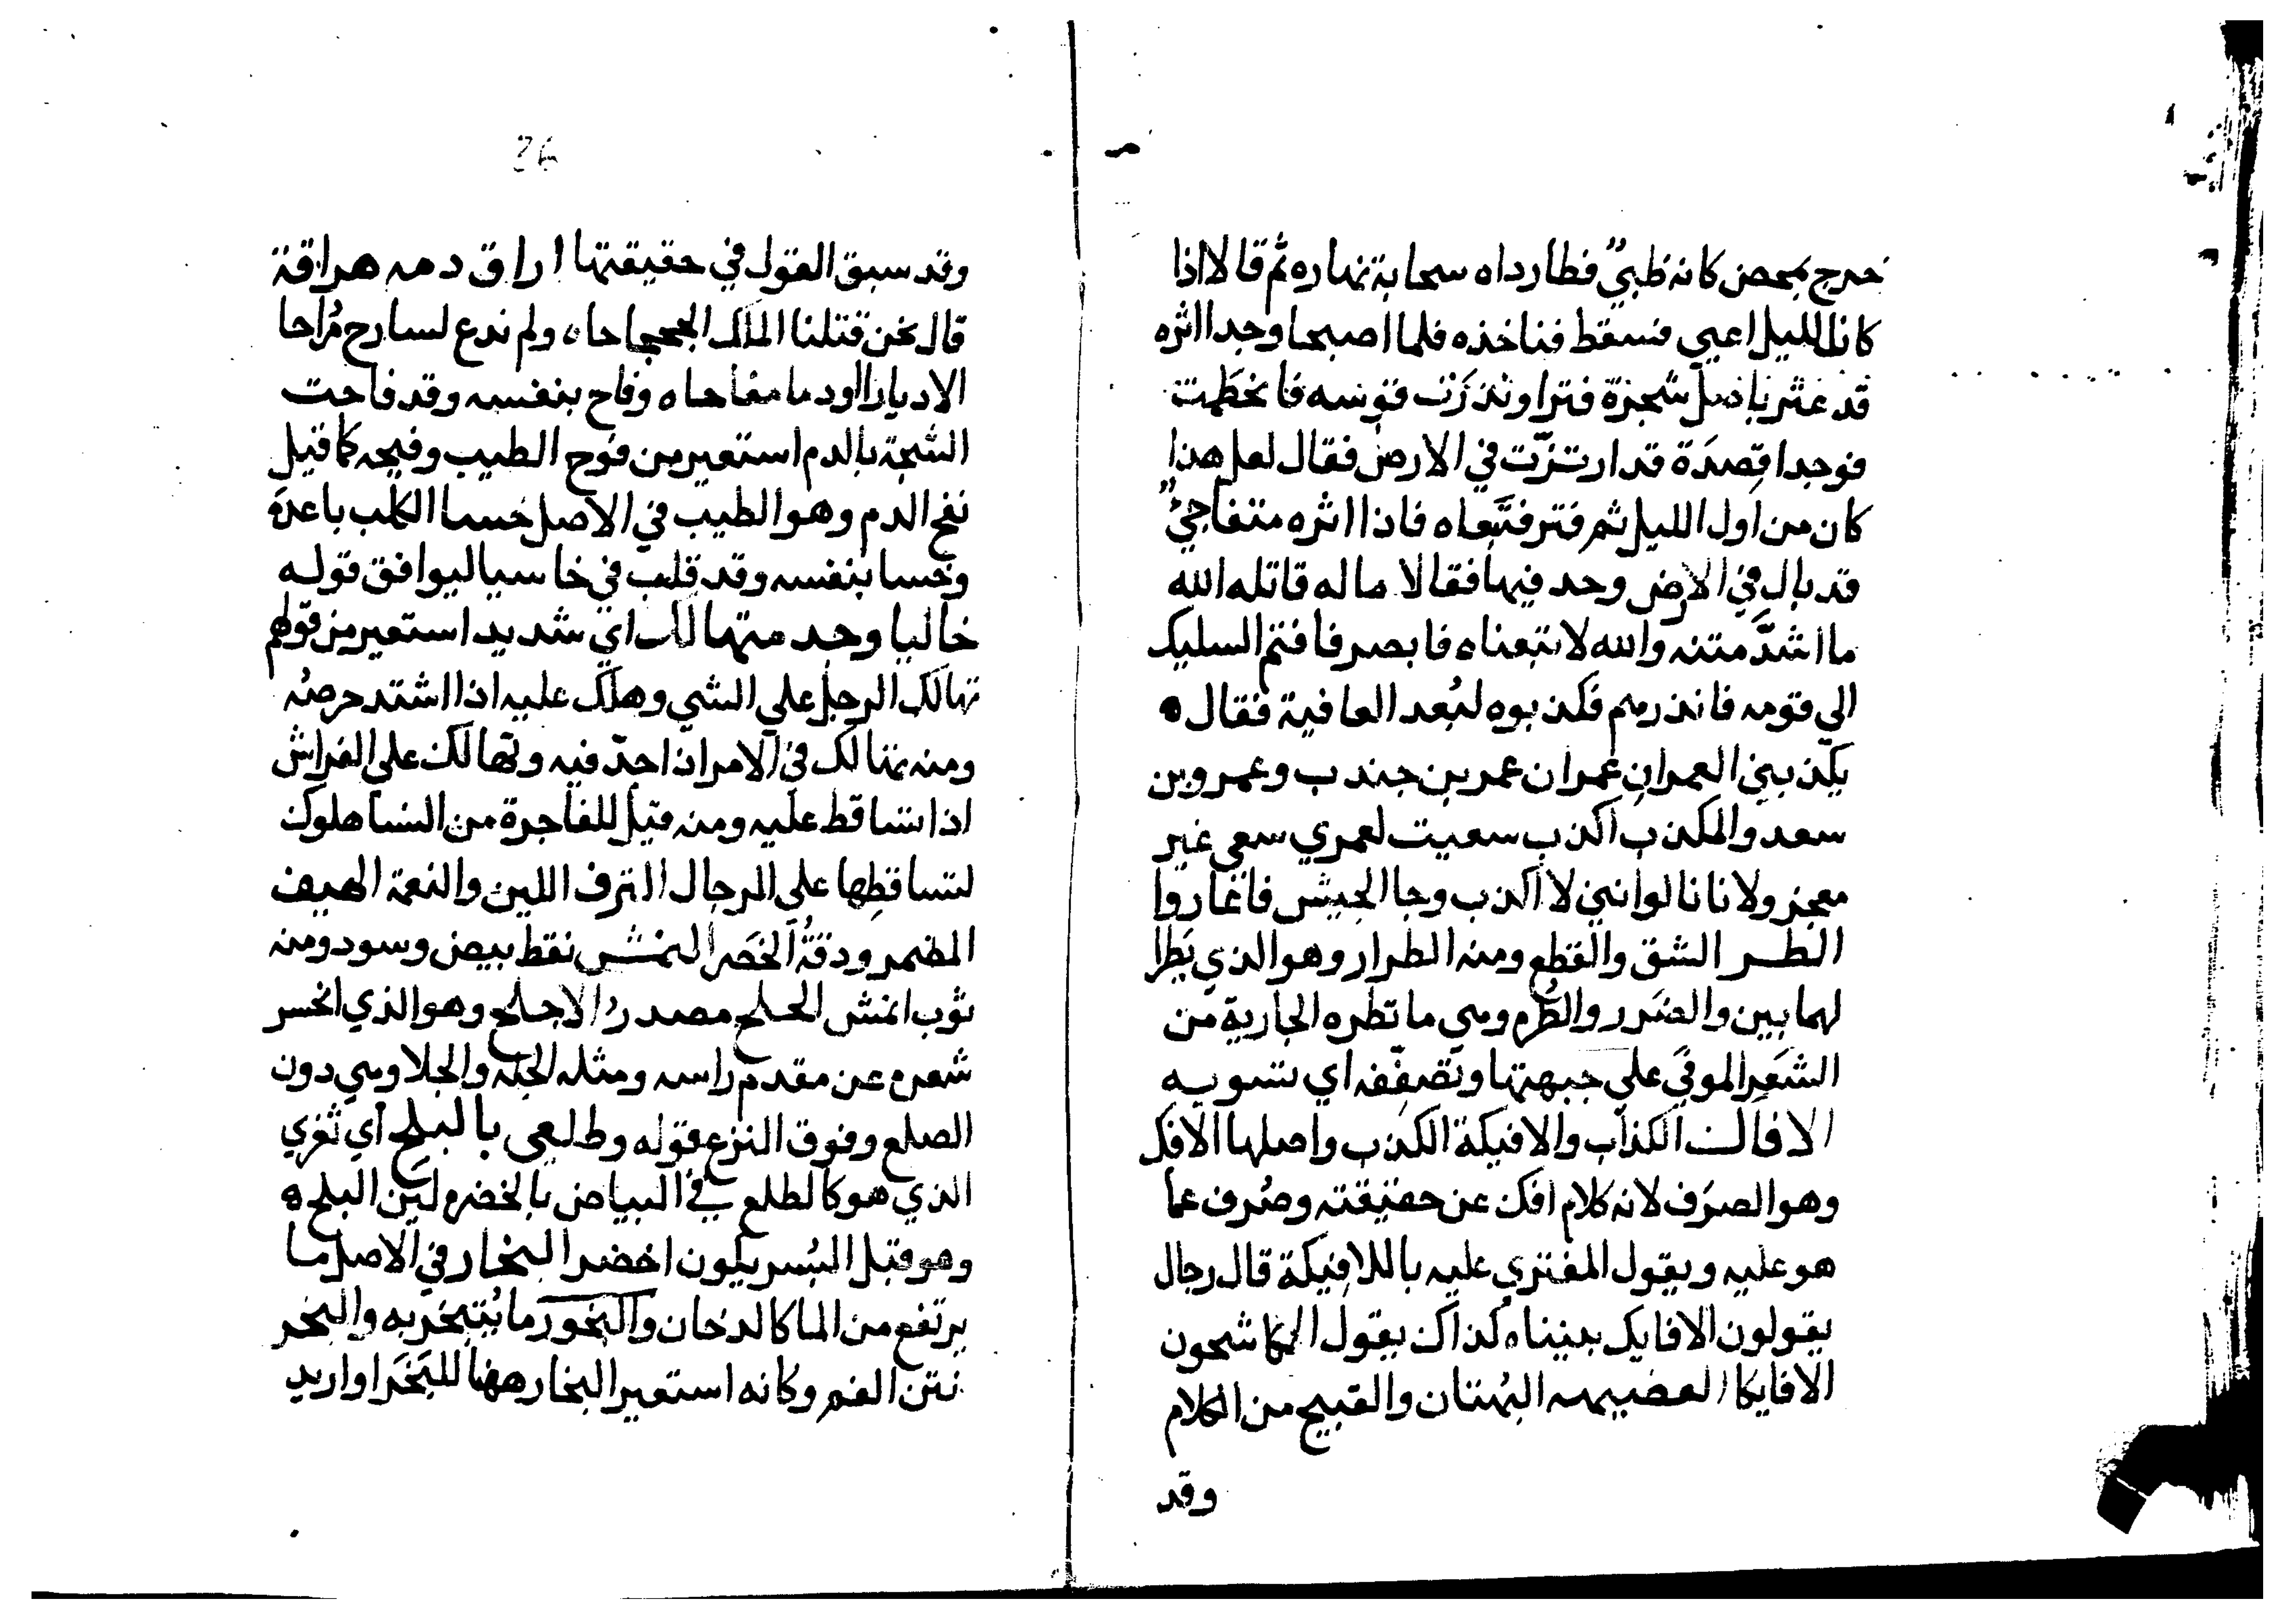 خرج يمحص كانه ظبيٌ فطارداه سحابة نهاره ثم قالا اذا
كان الليل اعيي فسقط فناخذه فلما اصبحا وجدا اثره
قد عثر باصل شجرة فنزا وندرت قوسه فانحطمت
فوجدا قِصدَة قد ارتزّت في الارض فقال لعل هذا
كان من اول الليل ثم فتر فتبعاه فاذا اثره متفاجيٌ
قد بال في الارض وخد فيها فقالا ما له قاتله الله
ما اشدّ متنه والله لا نتبعناه فابصر فا فتم السليك
الي قومه فانذرهم فكذبوه لبُعد الغاية فقال ه
يكذبني العمرانِ عمران عمر بن جندب وعمرو بن
سعد والمكذب اكذب سعيت لعمري سعي غير
معجز ولا نانا لو انني لا اكذب وجا الجيش فاغاروا
الطــر الشق والقطع ومنه الطرار وهو الذي يَطرا
لهمابين والصرر والطُرم وهي ما تطره الجارية من
الشعَر الموفي علي جبهتها وتصففه اي تسويه
الافاك الكذاب والافيكة الكذب واصلها الافك
وهو الصرَف لانه كلام افك عن حقيقته وصُرف عما
هو عليه ويقول المفتري عليه ياللافيكة قال رجال
يقولون الافايك بيننا ه كذاك يقول الكاشحون
الافايكا العضيهه البُهتان والقبيح من الكلام
وقد
26
وقد سبق القول في حقيقتها اراق دمه هراقة
قال نحن قتلنا الملك الجحجاحا ه ولم ندع لسارح مُراحا
الا ديارا او دما مفاحا ه وفاح بنفسه وقد فاحت
الشجة بالدم استعير من فوح الطيب وفيحه كما قيل
نفح الدم وهو الطيب في الاصل خسا الكلب باعدهَ
وخسا بنفسه وقد قلب في خاسيا ليوافق قولـه
خاليا وجد متهالك اي شديد استعير من قولهم
تهالك الرجل علي الشي وهلك عليه اذا اشتد حرصُه
ومنه تهالك في الامر اذا جدّ فيه وتهالك علي الفراش
اذا تساقط عليه ومنه قيل للفاجرة من النسا هلوك
لتساقطها علي الرجال الترف اللين والنعمة الهيف
الضمر ودقةُ الخَصر النمش نقط بيض وسود ومنه
ثوب انمش الجلح مصدرُ الاجلح وهو الذي انحسر
شعره عن مقدم راسه ومثله الجله والجلا وهي دون
الصلع وفوق النزع قوله وطلعي بالبلح اي ثغري
الذي هو كالطلع في البياض بالخضرم لَين البلح ه
وهو قبل البُسر يكون اخضر البخار في الاصل مـا
يرتفع من الما كالدخان والبخور ما يُتبخر به والبخر
نتن الفم وكانه استعير البخار ههنا للبَخَر او اريد